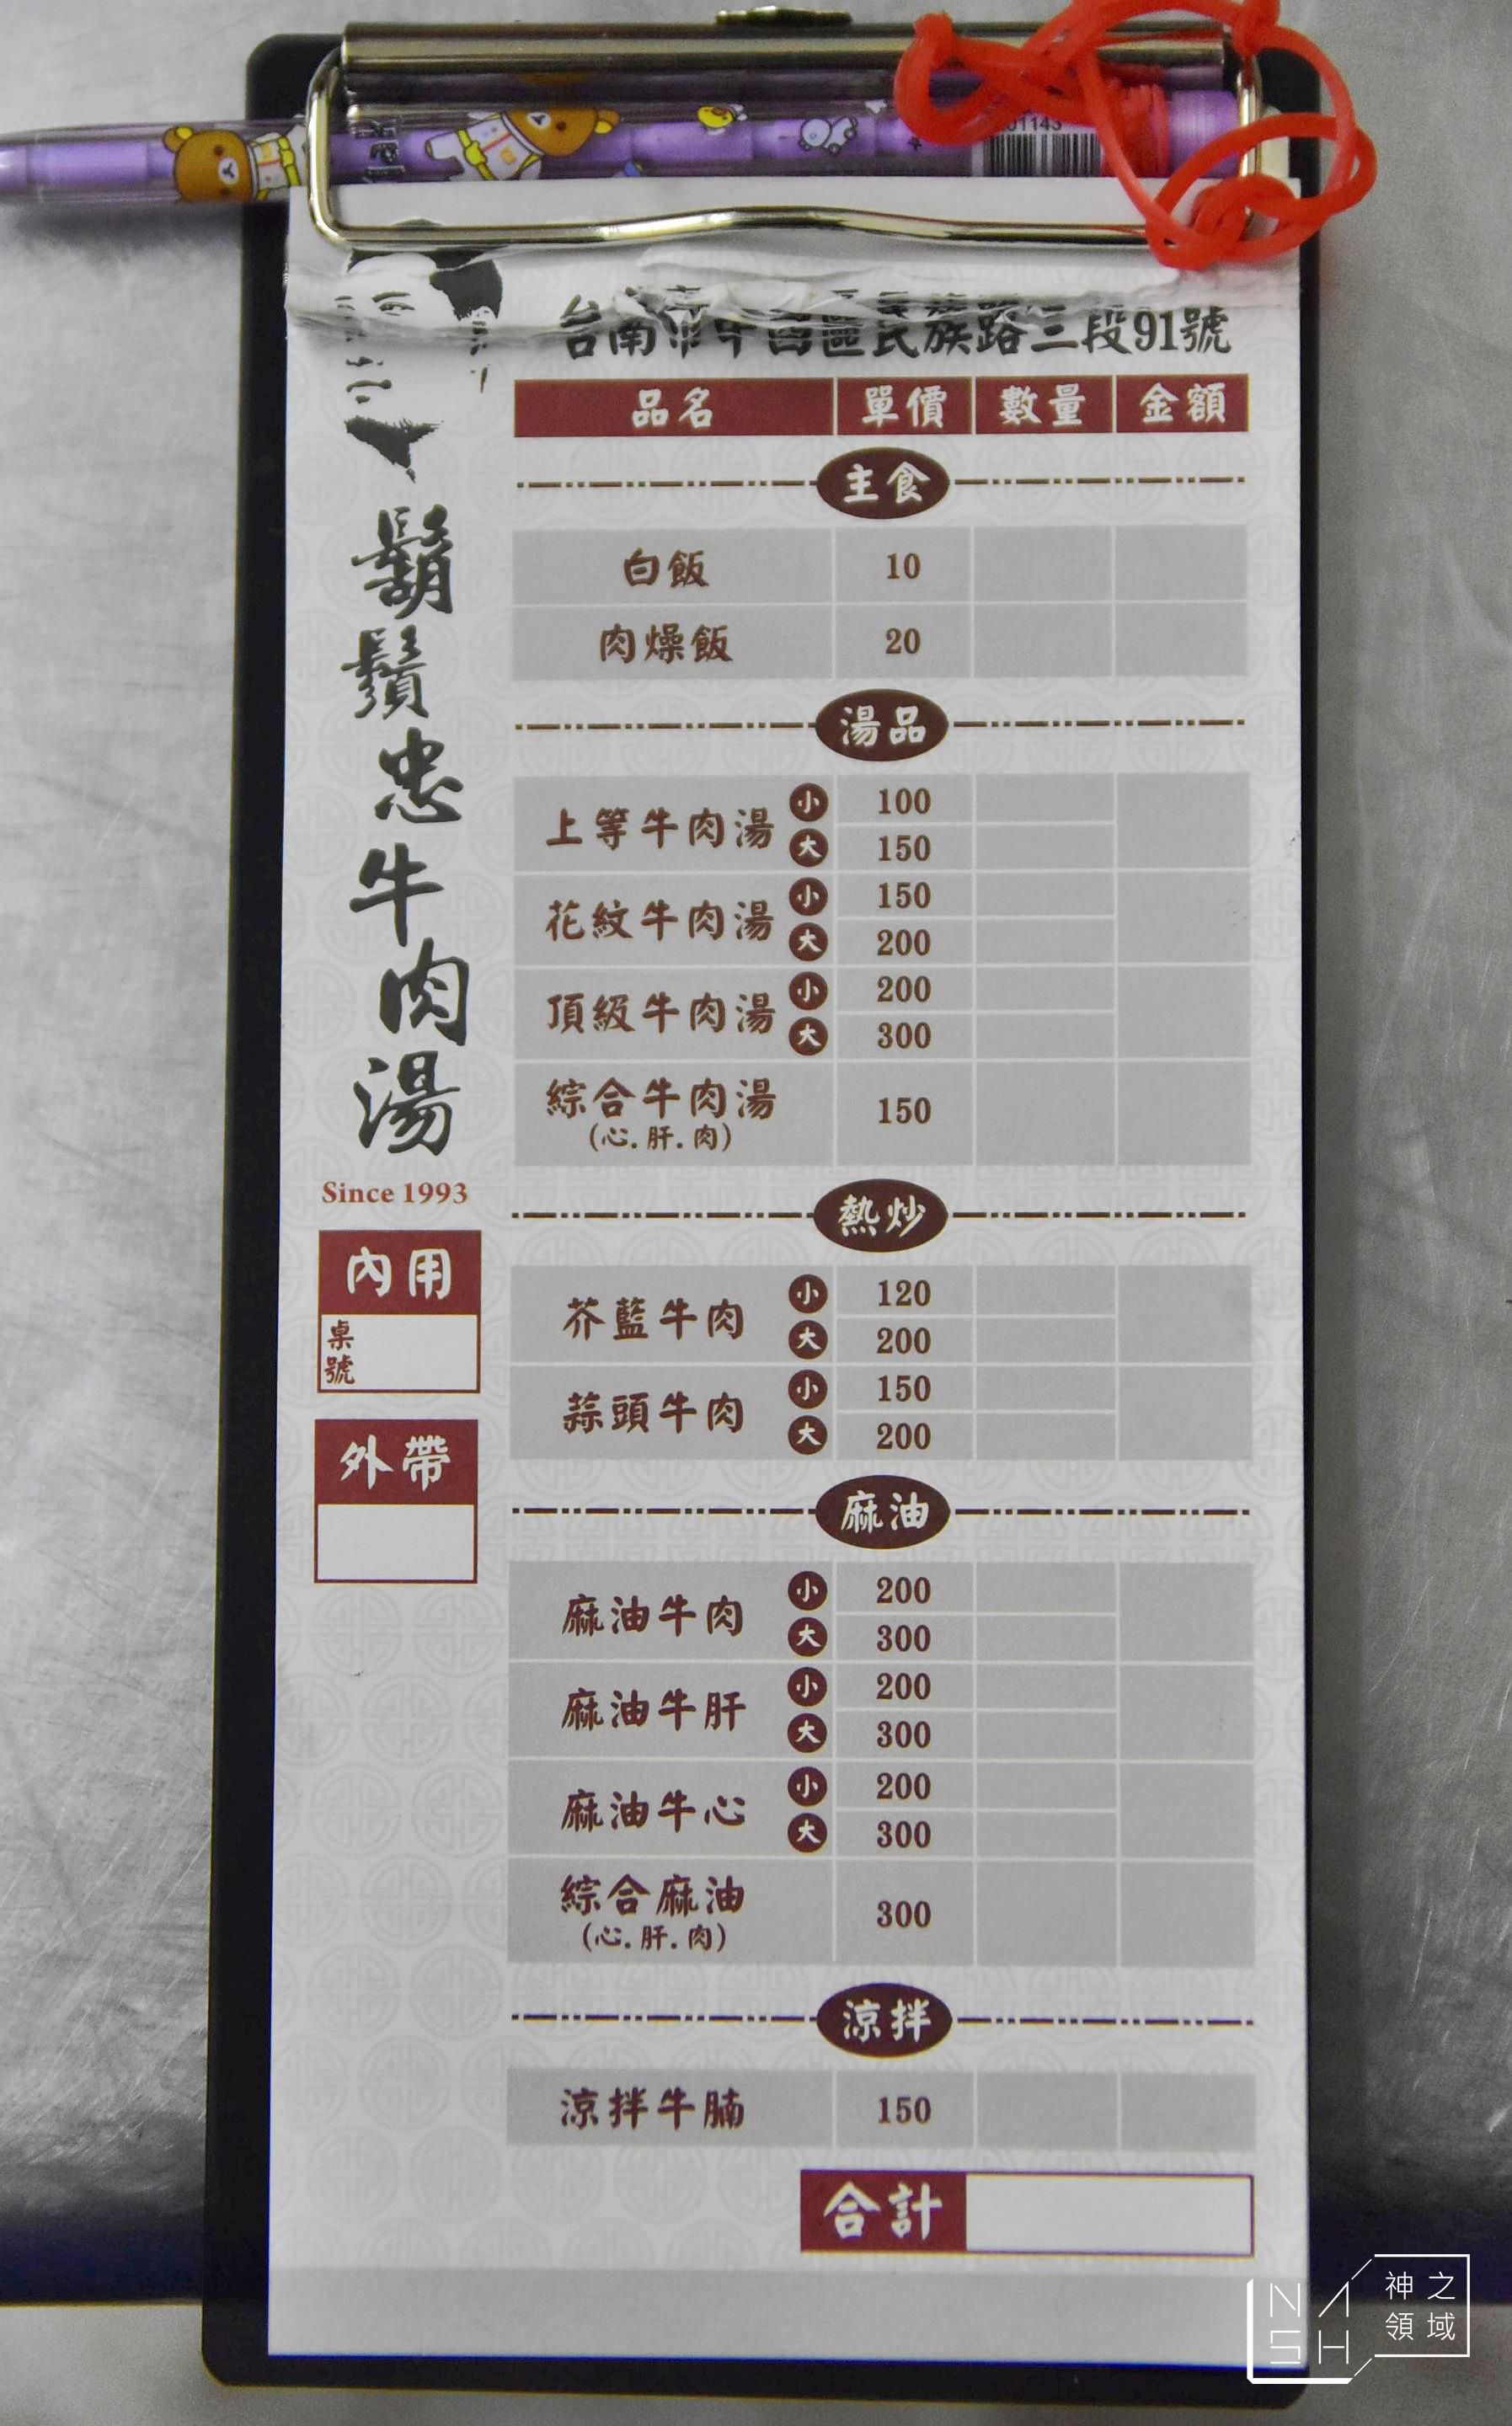 01143
台南市中西區民族路三段91號
鬍鬚忠牛肉湯
Since 1993
內用
桌號
外帶
品名 單價 數量 金額
主食
白飯 10
肉燥飯 20
湯品
上等牛肉湯 小 100
大 150
花紋牛肉湯 小 150
大 200
頂級牛肉湯 小 200
大 300
綜合牛肉湯 150
(心.肝.肉)
熱炒
芥藍牛肉 小 120
大 200
蒜頭牛肉 小 150
大 200
麻油
麻油牛肉 小 200
大 300
麻油牛肝 小 200
大 300
麻油牛心 小 200
大 300
綜合麻油 300
(心.肝.肉)
涼拌
涼拌牛腩 150
合計
NASH
神之
領域